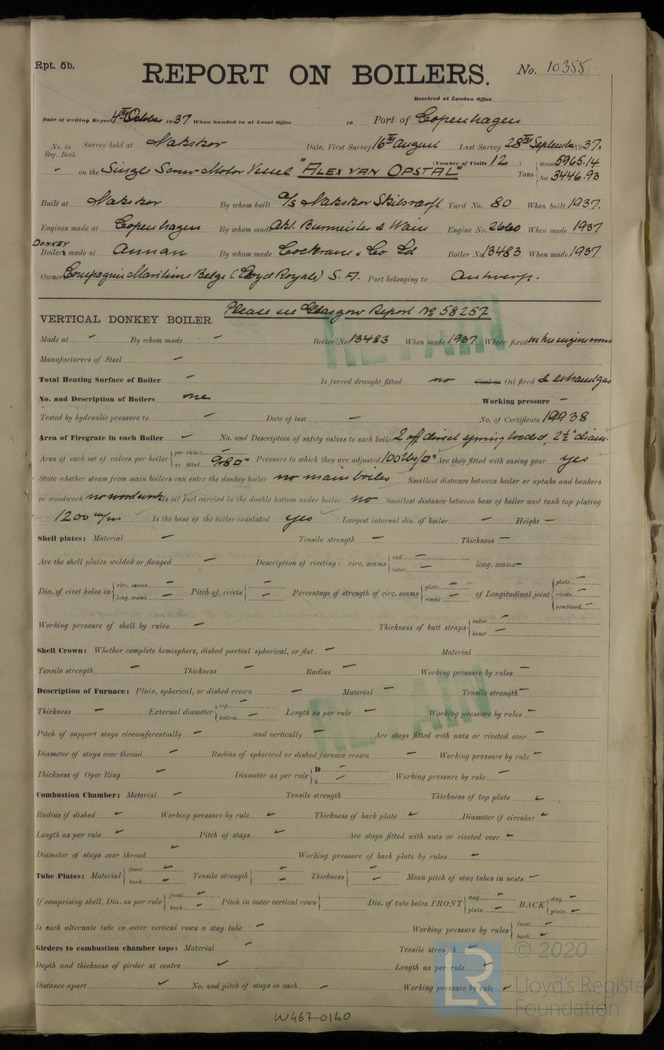 Rpt. 5b.
REPORT ON BOILERS.
No. 10355.
Received at London Office
Date of writing Report 4th October 1937 When handed in at Local Office 19 Port of Copenhagen
No. in Reg. Book Survey held at Nakskov Date, First Survey 16th August Last Survey 28th September 1937.
(Number of Visits 12)
" on the Single Screw Motor Vessel "ALEX VAN OPSTAL" Tons { Gross 5965.14 Net 3446.93
Built at Nakskov By whom built A/S Nakskov Skibsværft Yard No. 80 When built 1937.
Engines made at Copenhagen By whom made Akt. Burmeister & Wain Engine No. 2660 When made 1937
DONKEY Boilers made at Annan By whom made Cochran & Co Ld Boiler No. 13483 When made 1937
Owners Compagnie Maritime Belge (Lloyd Royale) S.A. Port belonging to Antwerp.
VERTICAL DONKEY BOILER. Please see Glasgow Report No 58257
Made at - By whom made - Boiler No. 13483 When made 1937 Where fixed in the engine room
Manufacturers of Steel -
Total Heating Surface of Boiler - Is forced draught fitted no Coal or Oil fired & exhaust gas
No. and Description of Boilers one Working pressure -
Tested by hydraulic pressure to - Date of test - No. of Certificate 19938
Area of Firegrate in each Boiler - No. and Description of safety valves to each boiler 2 off direct spring loaded, 2½" diam.
Area of each set of valves per boiler { per rule as fitted 9.80" Pressure to which they are adjusted 100 lb/□" Are they fitted with easing gear yes
State whether steam from main boilers can enter the donkey boiler no main boilers Smallest distance between boiler or uptake and bunkers
or woodwork no woodwork Is oil fuel carried in the double bottom under boiler no Smallest distance between base of boiler and tank top plating
1200 m/m Is the base of the boiler insulated yes Largest internal dia. of boiler - Height -
Shell plates: Material - Tensile strength - Thickness -
Are the shell plates welded or flanged - Description of riveting: circ. seams { end - inter. - long. seams -
Dia. of rivet holes in { circ. seams - long. seams - Pitch of rivets { - - Percentage of strength of circ. seams { plate - rivets - of Longitudinal joint { plate - rivets - combined -
Working pressure of shell by rules - Thickness of butt straps { outer - inner -
Shell Crown: Whether complete hemisphere, dished partial spherical, or flat - Material
Tensile strength - Thickness - Radius - Working pressure by rules -
Description of Furnace: Plain, spherical, or dished crown - Material - Tensile strength -
Thickness - External diameter { top - bottom - Length as per rule - Working pressure by rules -
Pitch of support stays circumferentially - and vertically - Are stays fitted with nuts or riveted over -
Diameter of stays over thread - Radius of spherical or dished furnace crown - Working pressure by rule -
Thickness of Ogee Ring - Diameter as per rule { D - d - Working pressure by rule -
Combustion Chamber: Material - Tensile strength Thickness of top plate
Radius if dished Working pressure by rule Thickness of back plate Diameter if circular
Length as per rule Pitch of stays Are stays fitted with nuts or riveted over
Diameter of stays over thread Working pressure of back plate by rules
Tube Plates: Material { front - back - Tensile strength { Thickness { Mean pitch of stay tubes in nests
If comprising shell, Dia. as per rule { front - back - Pitch in outer vertical rows { Dia. of tube holes FRONT { stay - plain - BACK { stay - plain
Is each alternate tube in outer vertical rows a stay tube - Working pressure by rules { front - back
Girders to combustion chamber tops: Material - Tensile strength
Depth and thickness of girder at centre Length as per rule
Distance apart No. and pitch of stays in each - Working pressure by rule
RETAIN
RETAIN
© 2020
LR
Lloyd's Register
Foundation
W467-0140